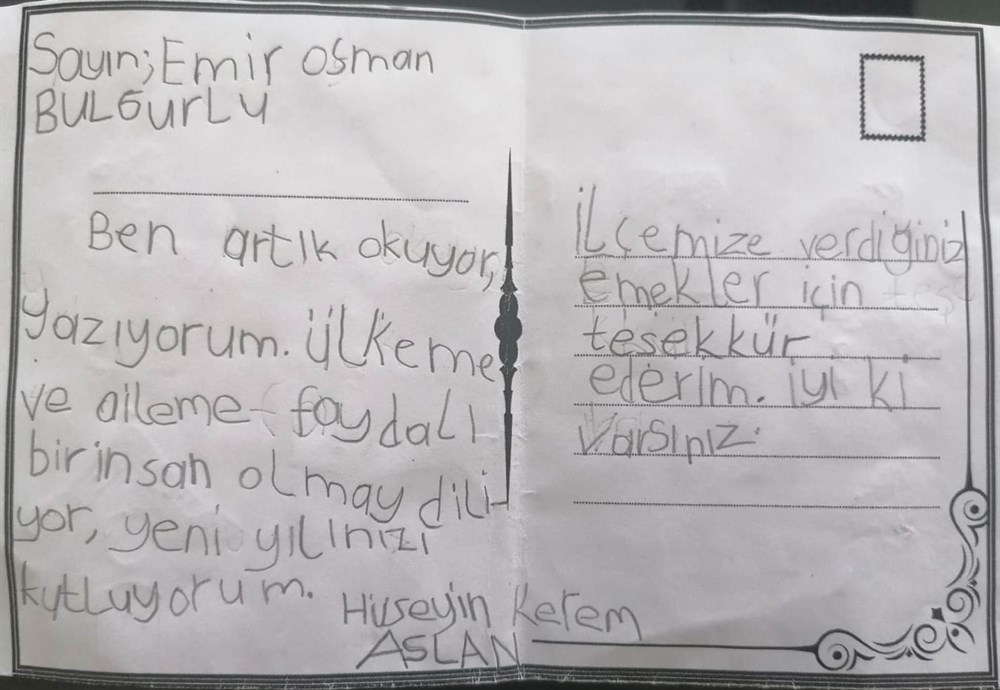 Sayın; Emir Osman
BULGurLu
Ben artık okuyor,
yazıyorum. ülkeme
ve aileme faydalı
bir insan olmay dili-
yor, yeni yılınızı
kutluyorum.
Hüseyin Kerem
ASLAN
İLçemize verdiğiniz
emekler için
teşekkür
ederim. iyi ki
varsınız.